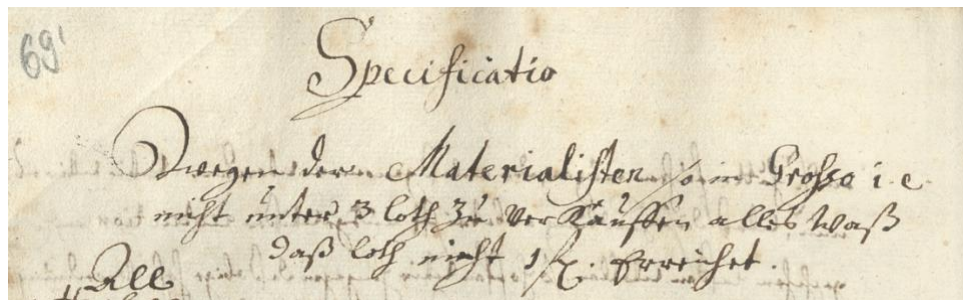 69'
Specificatio
wegen der Materialisten so in Grosso i. e.
nicht unter 3 loth zu verkauffen alles waß
daß loth nicht 1 erreichet.
All